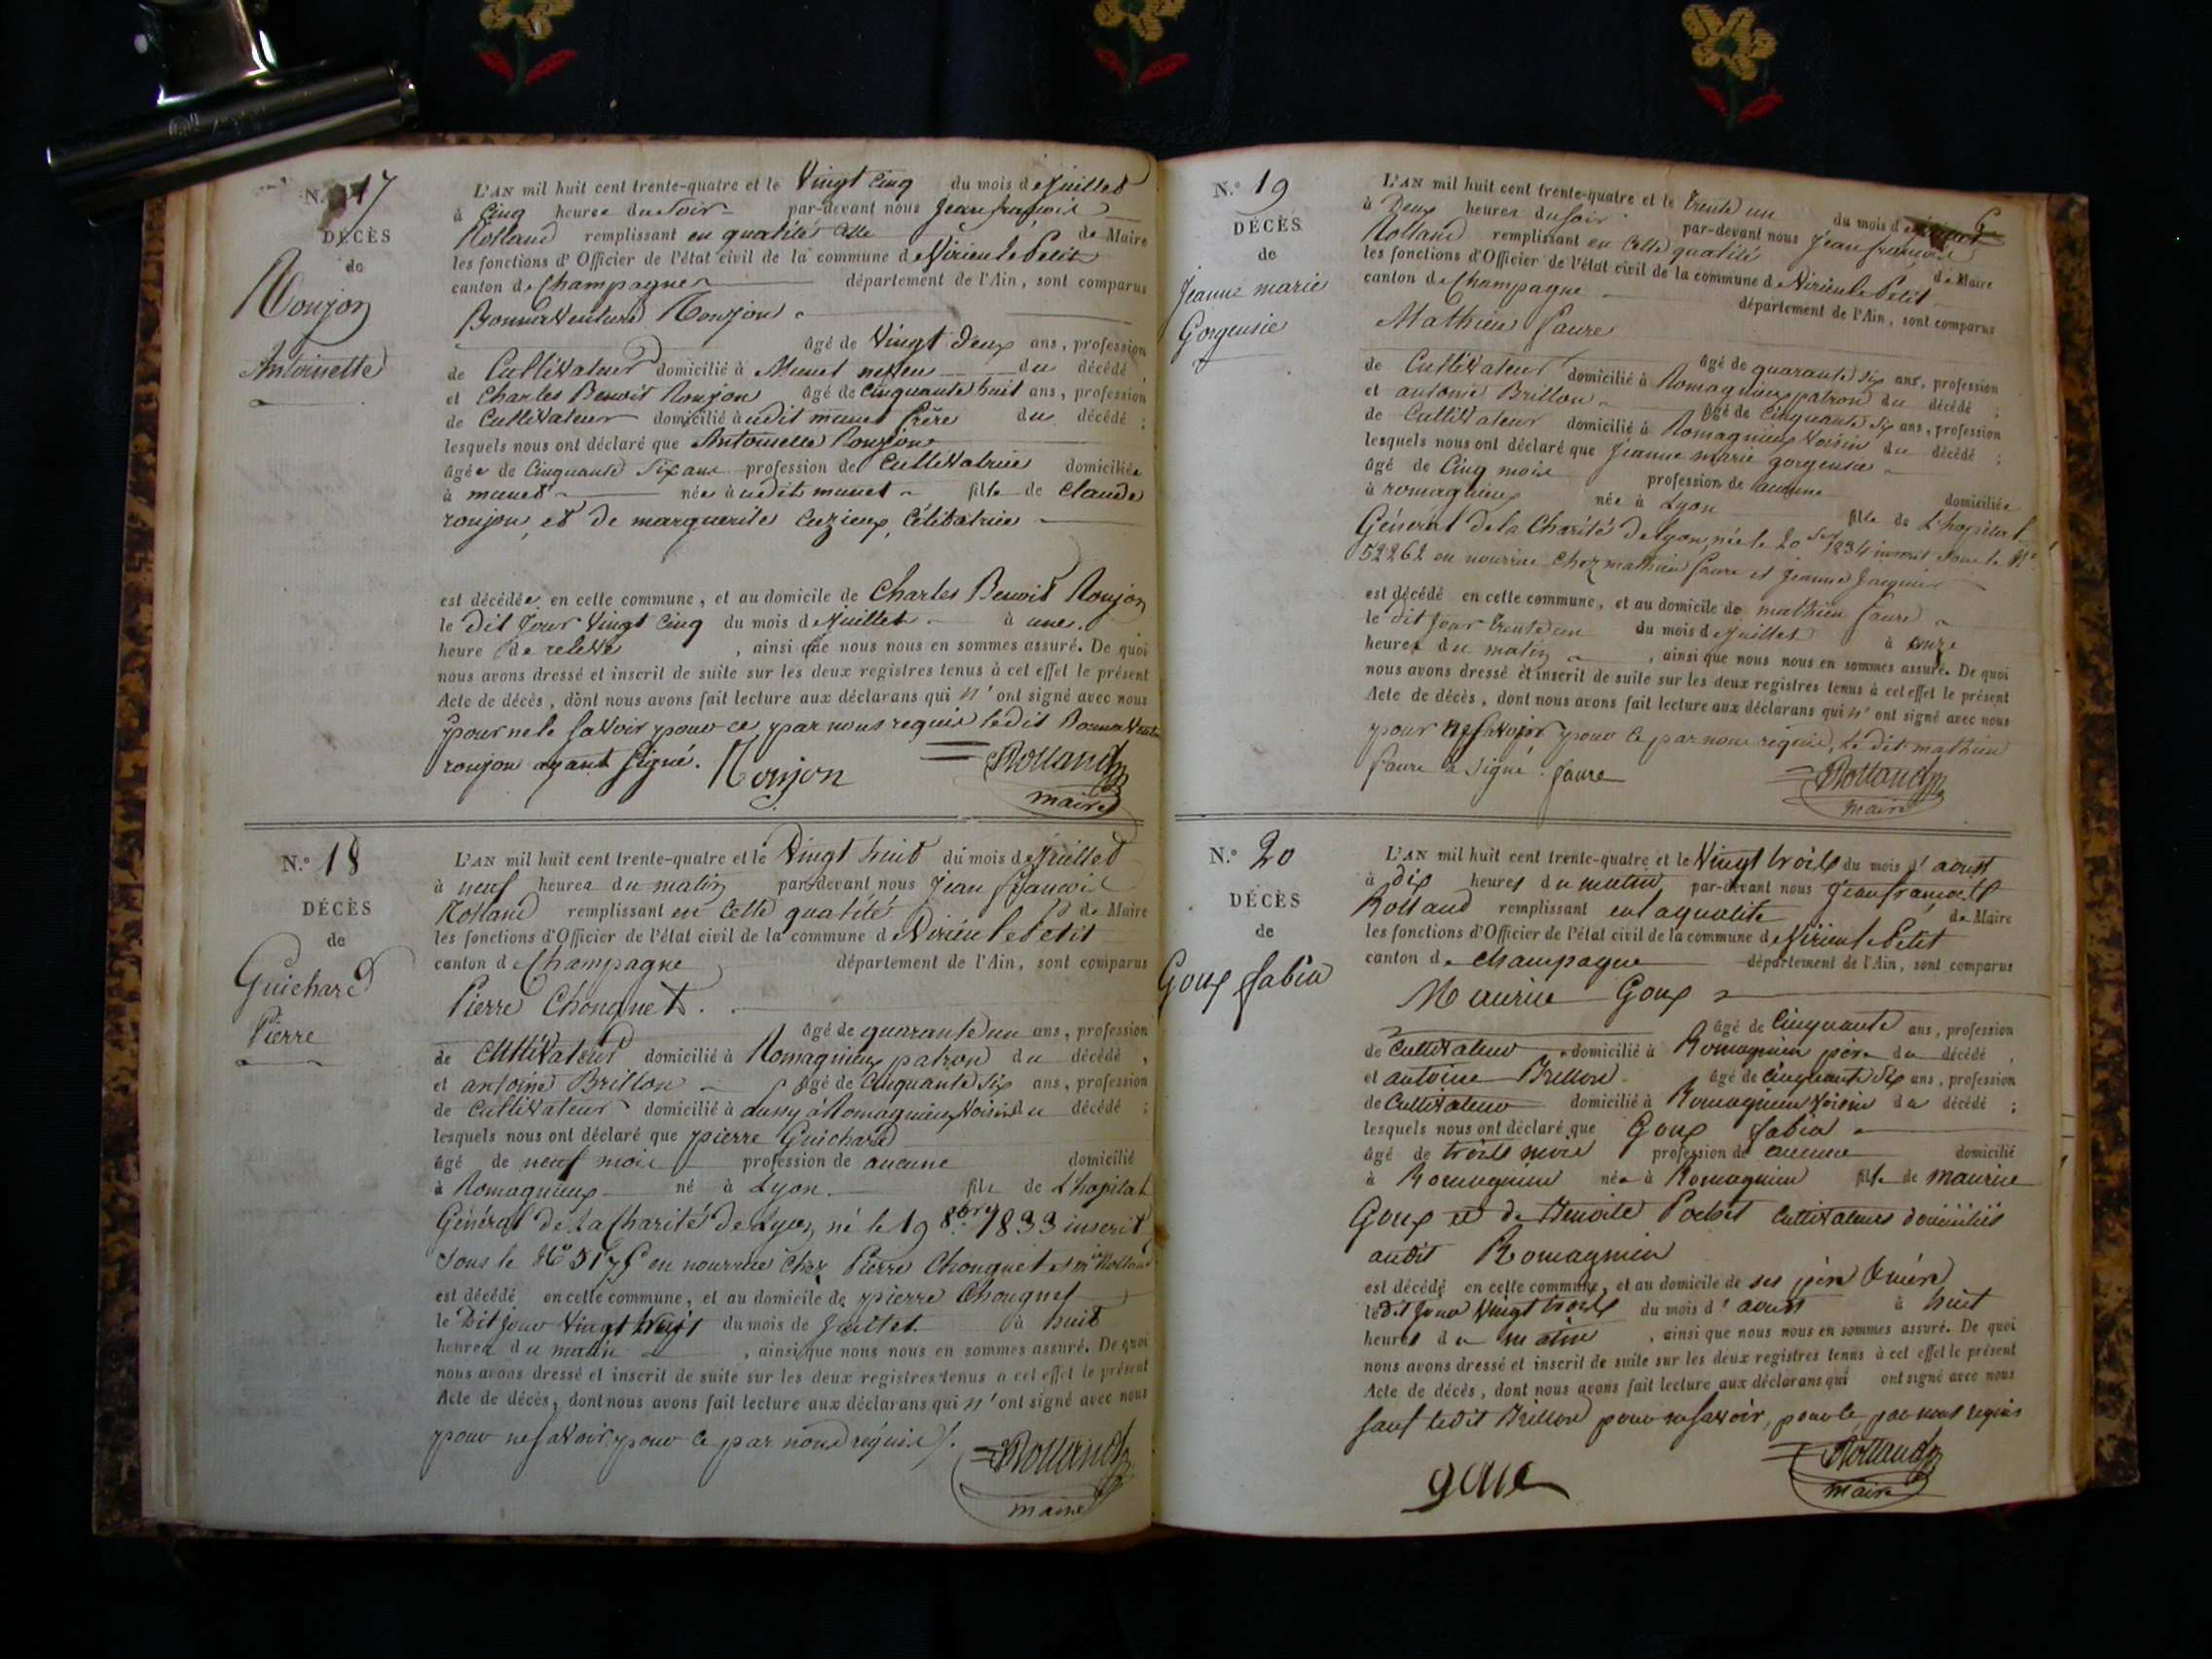 N.º 17
DÉCÈS
de
Roujon
Antoinette
L'AN mil huit cent trente-quatre et le Vingt Cinq du mois de Juillet
à Cinq heures du Soir par-devant nous Jean françois
Rolland remplissant en qualité de Maire
les fonctions d'Officier de l'état civil de la commune de Virieu le Petit
canton de Champagne département de l'Ain, sont comparus
Bonnaventure Roujon
âgé de Vingt Deux ans, profession
de Cultivateur domicilié à Munet neveu du décédé,
et Charles Benoit Roujon âgé de Cinquante huit ans, profession
de Cultivateur domicilié à udit munet frère du décédé ;
lesquels nous ont déclaré que Antoinette Roujon
âgée de Cinquante Six ans profession de Cultivatrice domiciliée
à munet née à udit munet fille de Claude
roujon et de marguerite Cuzieux, Célibatrice
est décédée en cette commune, et au domicile de Charles Benoit Roujon
le dit Jour Vingt Cinq du mois de Juillet à une
heure de relevé, ainsi que nous nous en sommes assuré. De quoi
nous avons dressé et inscrit de suite sur les deux registres tenus à cet effet le présent
Acte de décès, dont nous avons fait lecture aux déclarans qui n'ont signé avec nous
pour ne le Savoir pour ce par nous requis le dit Bonnaventure
roujon ayant Signé. Roujon Rolland
maire
N.º 18
DÉCÈS
de
Guichard
Pierre
L'AN mil huit cent trente-quatre et le Vingt huit du mois de Juillet
à neuf heures du matin par-devant nous Jean françois
Rolland remplissant en Cette qualité de Maire
les fonctions d'Officier de l'état civil de la commune de Virieu le Petit
canton de Champagne département de l'Ain, sont comparus
Pierre Chouquet.
âgé de quarante un ans, profession
de Cultivateur domicilié à Romagnieux patron du décédé,
et antoine Brillon âgé de Cinquante Six ans, profession
de Cultivateur domicilié à aussy à Romagnieux Voisin du décédé ;
lesquels nous ont déclaré que pierre Guichard
âgé de neuf mois profession de aucune domicilié
à Romagnieux né à Lyon fils de L'hopital
Général de La Charité de Lyon, né le 19 8bre 1833 inscrit
Sous le Nº en nourrice Chez Pierre Chouquet et Rolland
est décédé en cette commune, et au domicile de pierre Chouquet
le Dit jour Vingt huit du mois de Juillet à huit
heures du matin, ainsi que nous nous en sommes assuré. De quoi
nous avons dressé et inscrit de suite sur les deux registres tenus à cet effet le présent
Acte de décès, dont nous avons fait lecture aux déclarans qui n'ont signé avec nous
pour ne Savoir, pour ce par nous requis.
Rolland
maire
N.º 19
DÉCÈS
de
Jeanne marie
Gorgeusie
L'AN mil huit cent trente-quatre et le trente un du mois de
6
à Deux heures du Soir par-devant nous Jean françois
Rolland remplissant en Cette qualité de Maire
les fonctions d'Officier de l'état civil de la commune de Virieu le Petit
canton de Champagne département de l'Ain, sont comparus
Mathieu faure
âgé de quarante six ans, profession
de Cultivateur domicilié à Romagnieux patron du décédé ;
et antoine Brillon âgé de Cinquante Six ans, profession
de Cultivateur domicilié à Romagnieux Voisin du décédé ;
lesquels nous ont déclaré que Jeanne marie gorgeusie
âgé de Cinq mois profession de aucune domiciliée
à romagnieux née à Lyon fille de L'hopital
Général de la Charité de Lyon, née le 20 1834 inscrit sous le Nº
52262 en nourrice Chez mathieu faure et Jeanne Jacquier
est décédé en cette commune, et au domicile de mathieu faure
le dit Jour trente un du mois de Juillet à onze
heures du matin, ainsi que nous nous en sommes assuré. De quoi
nous avons dressé et inscrit de suite sur les deux registres tenus à cet effet le présent
Acte de décès, dont nous avons fait lecture aux déclarans qui n'ont signé avec nous
pour ne Savoir pour ce par nous requis, le dit mathieu
faure a Signé. faure Rolland
maire
N.º 20
DÉCÈS
de
Goux fabia
L'AN mil huit cent trente-quatre et le Vingt trois du mois d'aoust
à dix heures du matin par-devant nous Jean françois
Rolland remplissant en la qualité de Maire
les fonctions d'Officier de l'état civil de la commune de Virieu le Petit
canton de Champagne département de l'Ain, sont comparus
Maurice Goux
âgé de Cinquante ans, profession
de Cultivateur domicilié à Romagnieu père du décédé,
et antoine Brillon âgé de Cinquante Six ans, profession
de Cultivateur domicilié à Romagnieu Voisin du décédé ;
lesquels nous ont déclaré que Goux fabia
âgé de trois mois profession de aucune domicilié
à Romagnieu née à Romagnieu fille de maurice
Goux et de Benoite Pochet Cultivateurs domiciliés
audit Romagnieu
est décédé en cette commune, et au domicile de ses père & mère
le dit Jour Vingt trois du mois d'aoust à huit
heures du matin, ainsi que nous nous en sommes assuré. De quoi
nous avons dressé et inscrit de suite sur les deux registres tenus à cet effet le présent
Acte de décès, dont nous avons fait lecture aux déclarans qui ont signé avec nous
Sauf ledit Brillon pour ne Savoir, pour ce par nous requis
Rolland
goux maire